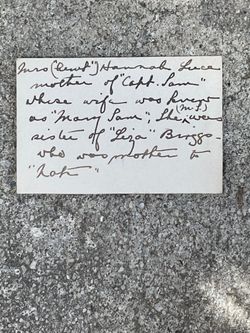 Mrs ("Aunt") Hannah Luce
mother of "Capt. Sam"
whose wife was known
as "Mary Sam"; She (M.S.) was
sister of "Liza" Briggs
who was mother to
"Nate"